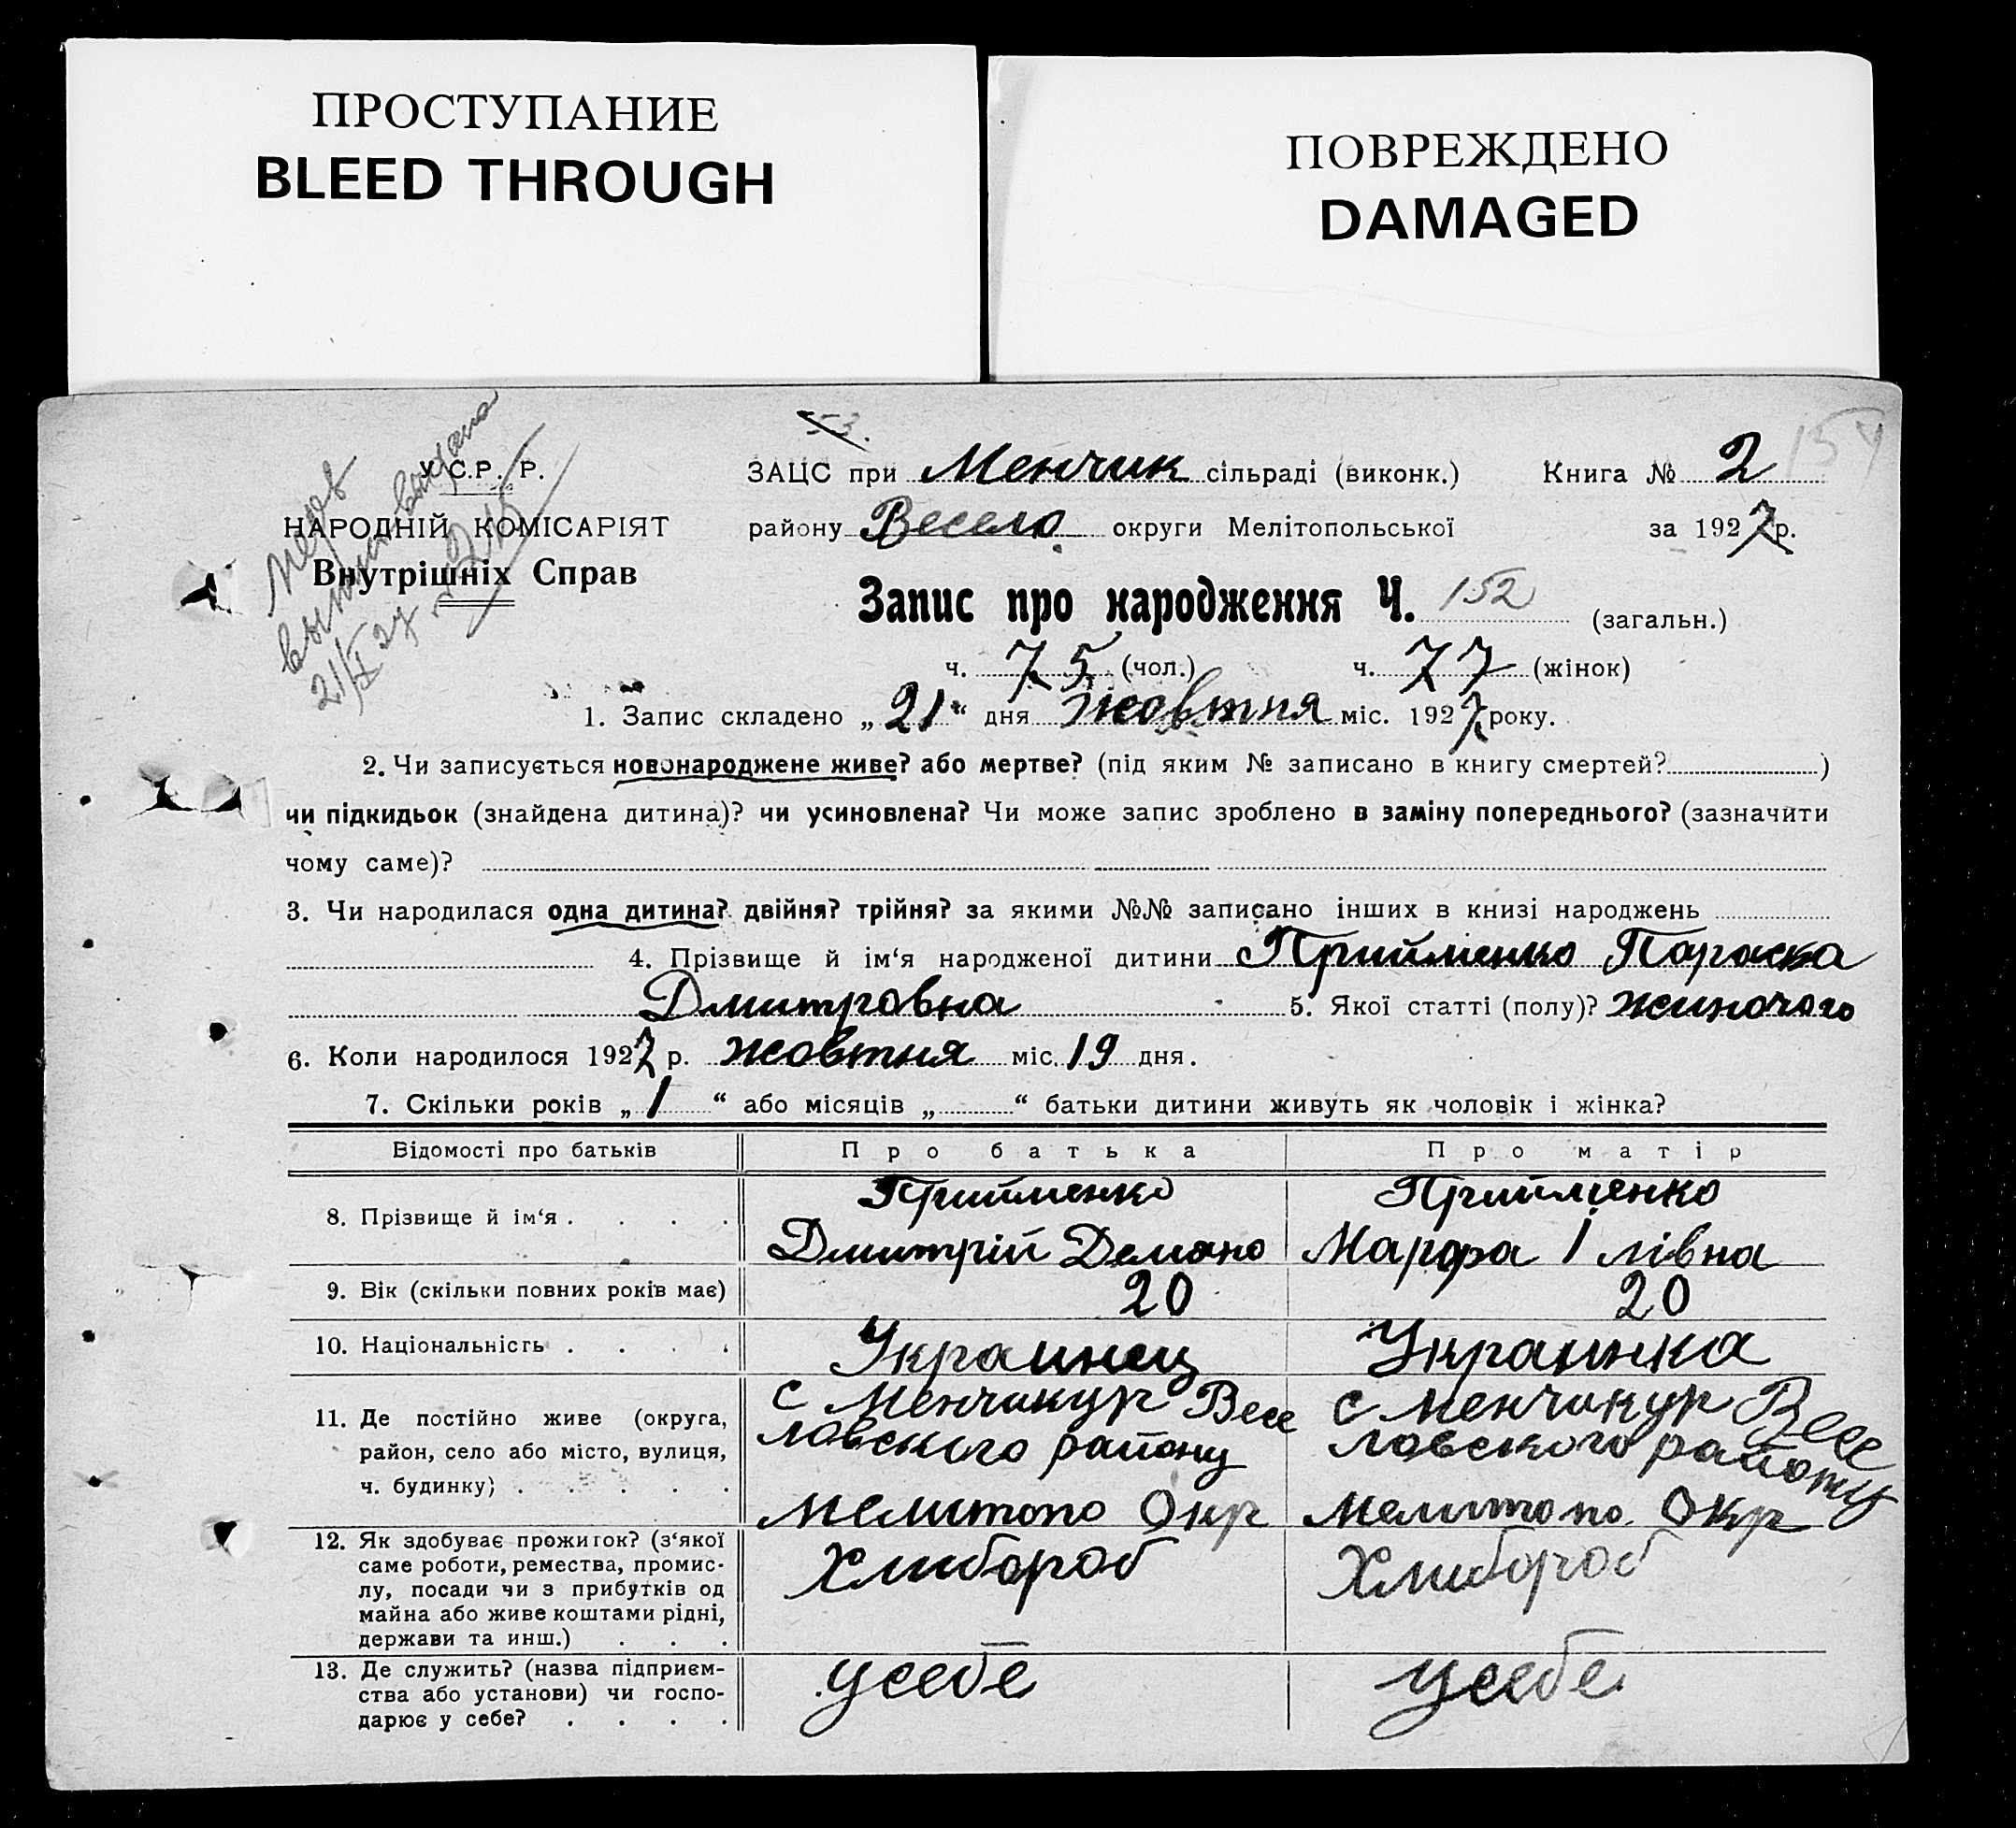 ПРОСТУПАНИЕ
BLEED THROUGH
ПОВРЕЖДЕНО
DAMAGED
53.
154
У.С.Р.Р.
НАРОДНІЙ КОМІСАРІЯТ
Внутрішніх Справ
выдана
21/X 27
ЗАЦС при Менчик сільраді (виконк.) Книга № 2
району Весело округи Мелітопольської за 1927 р.
Запис про народження Ч. 152 (загальн.)
ч. 75 (чол.) ч. 77 (жінок)
1. Запис складено „21“ дня Жовтня міс. 1927 року.
2. Чи записується новонароджене живе? або мертве? (під яким № записано в книгу смертей? )
чи підкидьок (знайдена дитина)? чи усиновлена? Чи може запис зроблено в заміну попереднього? (зазначити
чому саме)?
3. Чи народилася одна дитина? двійня? трійня? за якими №№ записано інших в книзі народжень
4. Прізвище й ім‘я народженої дитини Прийменко Параска
Дмитровна 5. Якої статті (полу)? жиночого
6. Коли народилося 1927 р. жовтня міс. 19 дня.
7. Скільки років „ 1 “ або місяців „ “ батьки дитини живуть як чоловік і жінка?
Відомості про батьків Про батька Про матір
8. Прізвище й ім‘я . . . . Прийменко Прийменко
Дмитрій Демяно Марфа Ілівна
9. Вік (скільки повних років має) 20 20
10. Національність . . . . Украинец Украинка
11. Де постійно живе (округа, с Менчикур Весе с Менчикур Весе
район, село або місто, вулиця, ловского району ловского району
ч. будинку) . . . . . Мелитопо Окр Мелитопо Окр
12. Як здобуває прожиток? (з‘якої Хлибороб Хлибороб
саме роботи, ремества, промис-
лу, посади чи з прибутків од
майна або живе коштами рідні,
держави та инш.) . . .
13. Де служить? (назва підприєм- усебе усебе
ства або установи) чи госпо-
дарює у себе? . . . .